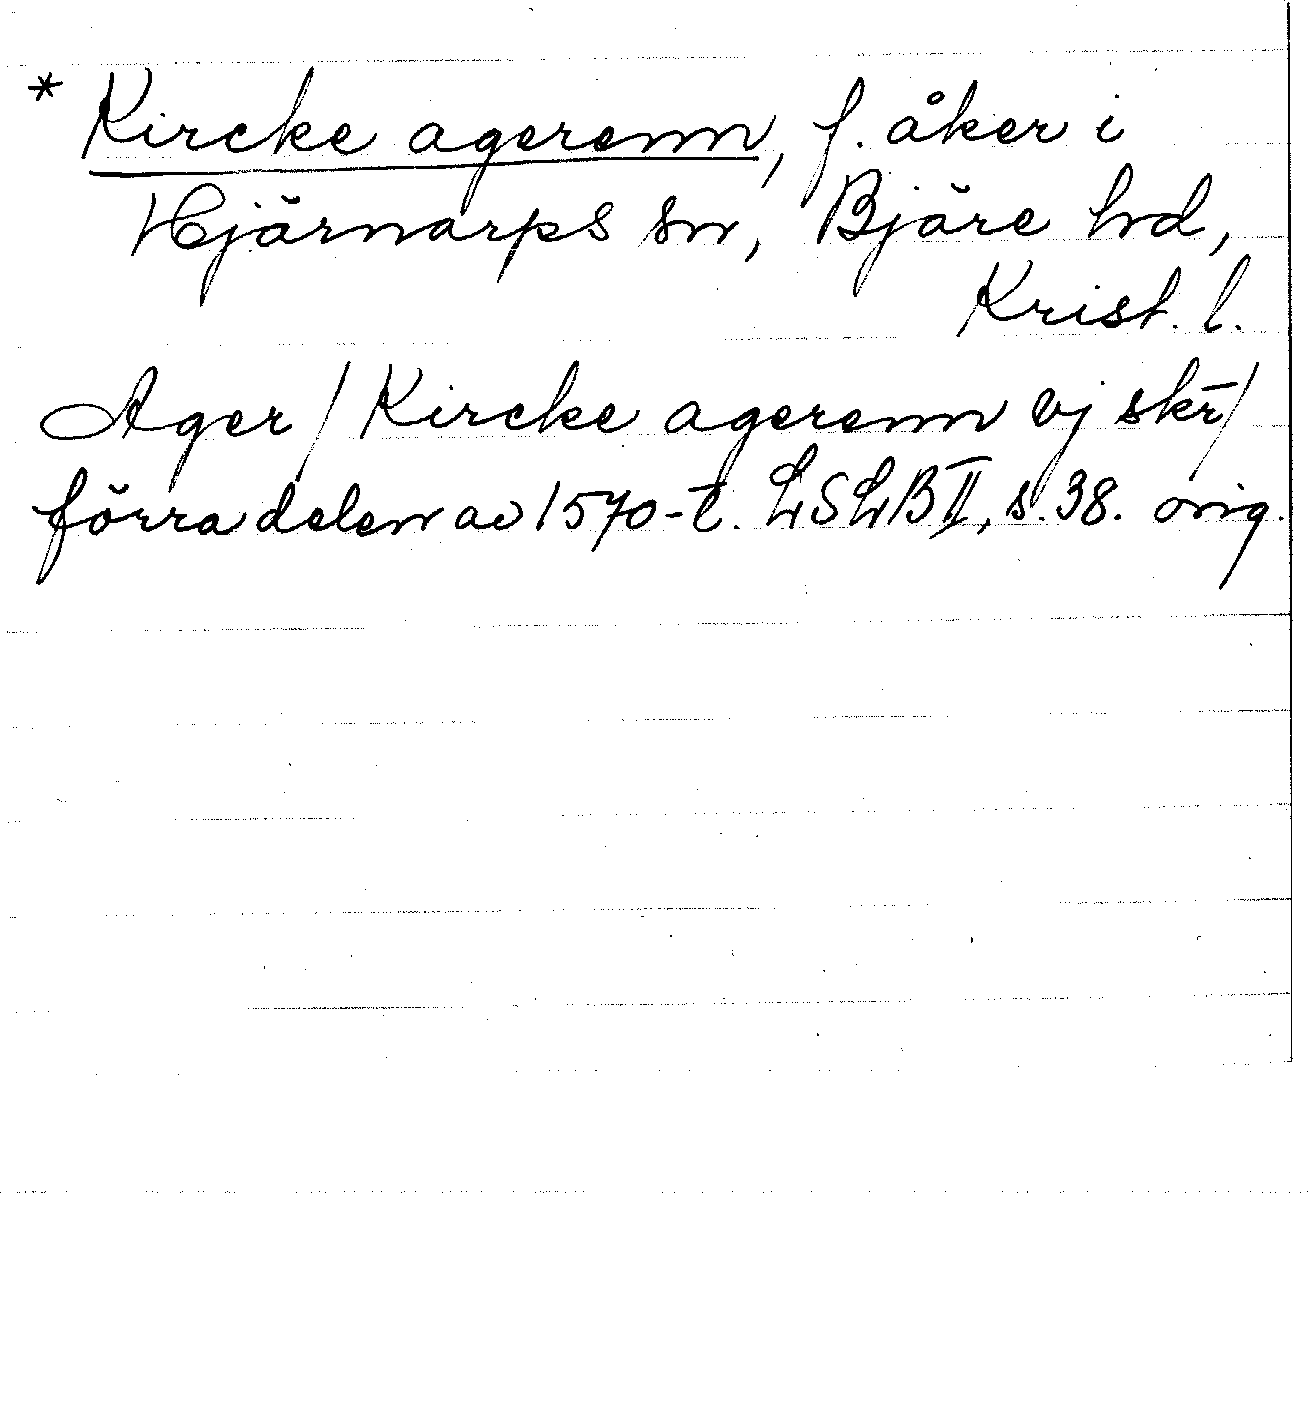 * Kircke agerenn, f. åker i
Hjärnarps sn, Bjäre hd,
Krist. l.
Ager / Kircke agerenn ej skr̄/
förra delen av 1570-t. LSLB II, s. 38. orig.